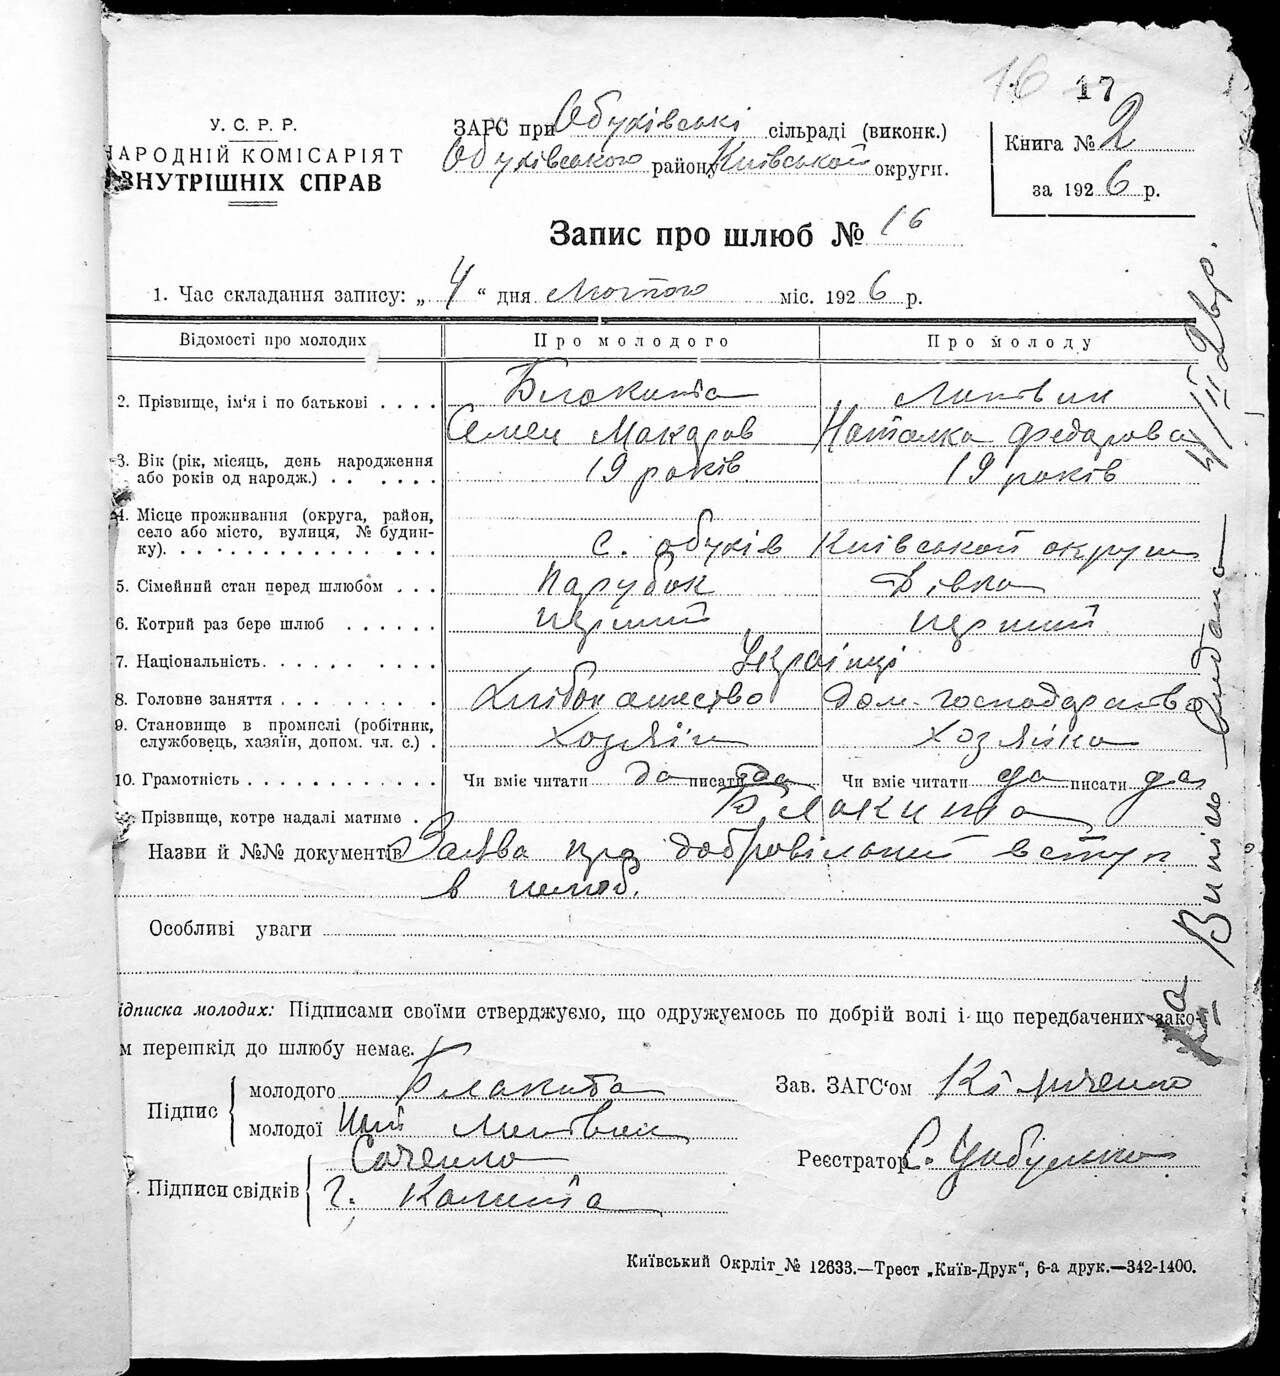 16 17
У. С. Р. Р.
НАРОДНІЙ КОМІСАРІЯТ
ВНУТРІШНІХ СПРАВ
ЗАГС при Обухівські сільраді (виконк.)
Обухівського району Київської округи.
Книга № 2
за 1926 р.
Запис про шлюб № 16
1. Час складання запису: „4“ дня Лютого міс. 1926 р.
Відомості про молодих Про молодого Про молоду
2. Прізвище, ім'я і по батькові . . . . Блакита Литвин
Семен Макаров Наталка Федарова
3. Вік (рік, місяць, день народження
або років од народж.) . . . . . . 19 років 19 років
4. Місце проживання (округа, район,
село або місто, вулиця, № будин-
ку). . . . . . . . . . . . . . с. Обухів Київської округи
5. Сімейний стан перед шлюбом . . . Парубок Дівка
6. Котрий раз бере шлюб . . . . . . перший перший
7. Національність. . . . . . . . . . Українці
8. Головне заняття . . . . . . . . . Хлібопашество Дом. господарство
9. Становище в промислі (робітник,
службовець, хазяїн, допом. чл. с.) . Хозяїн Хозяйка
10. Грамотність . . . . . . . . . . . Чи вміє читати да писати да Чи вміє читати да писати да
Прізвище, котре надалі матиме . Блакита
Назви й №№ документів Заява про добровільний вступ
в шлюб.
Особливі уваги
ідписка молодих: Підписами своїми стверджуємо, що одружуємось по добрій волі і що передбачених зако-
м перешкід до шлюбу немає.
Підпис молодого Блакита
молодої Литвин
Зав. ЗАГС'ом
Підписи свідків
Г. Калита
Реєстратор С. Цибулько
Випись видана 4/II 2 вр.
Київський Окрліт № 12633.—Трест „Київ-Друк“, 6-а друк.—342-1400.